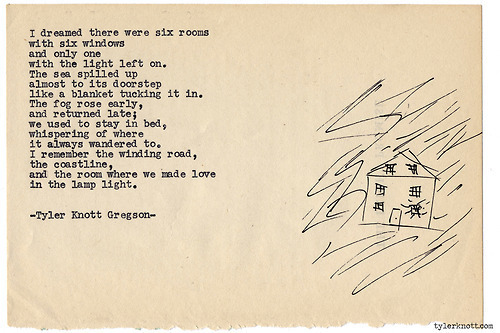 I dreamed there were six rooms
with six windows
and only one
with the light left on.
The sea spilled up
almost to its doorstep
like a blanket tucking it in.
The fog rose early,
and returned late;
we used to stay in bed,
whispering of where
it always wandered to.
I remember the winding road,
the coastline,
and the room where we made love
in the lamp light.
-Tyler Knott Gregson-
tylerknott.com